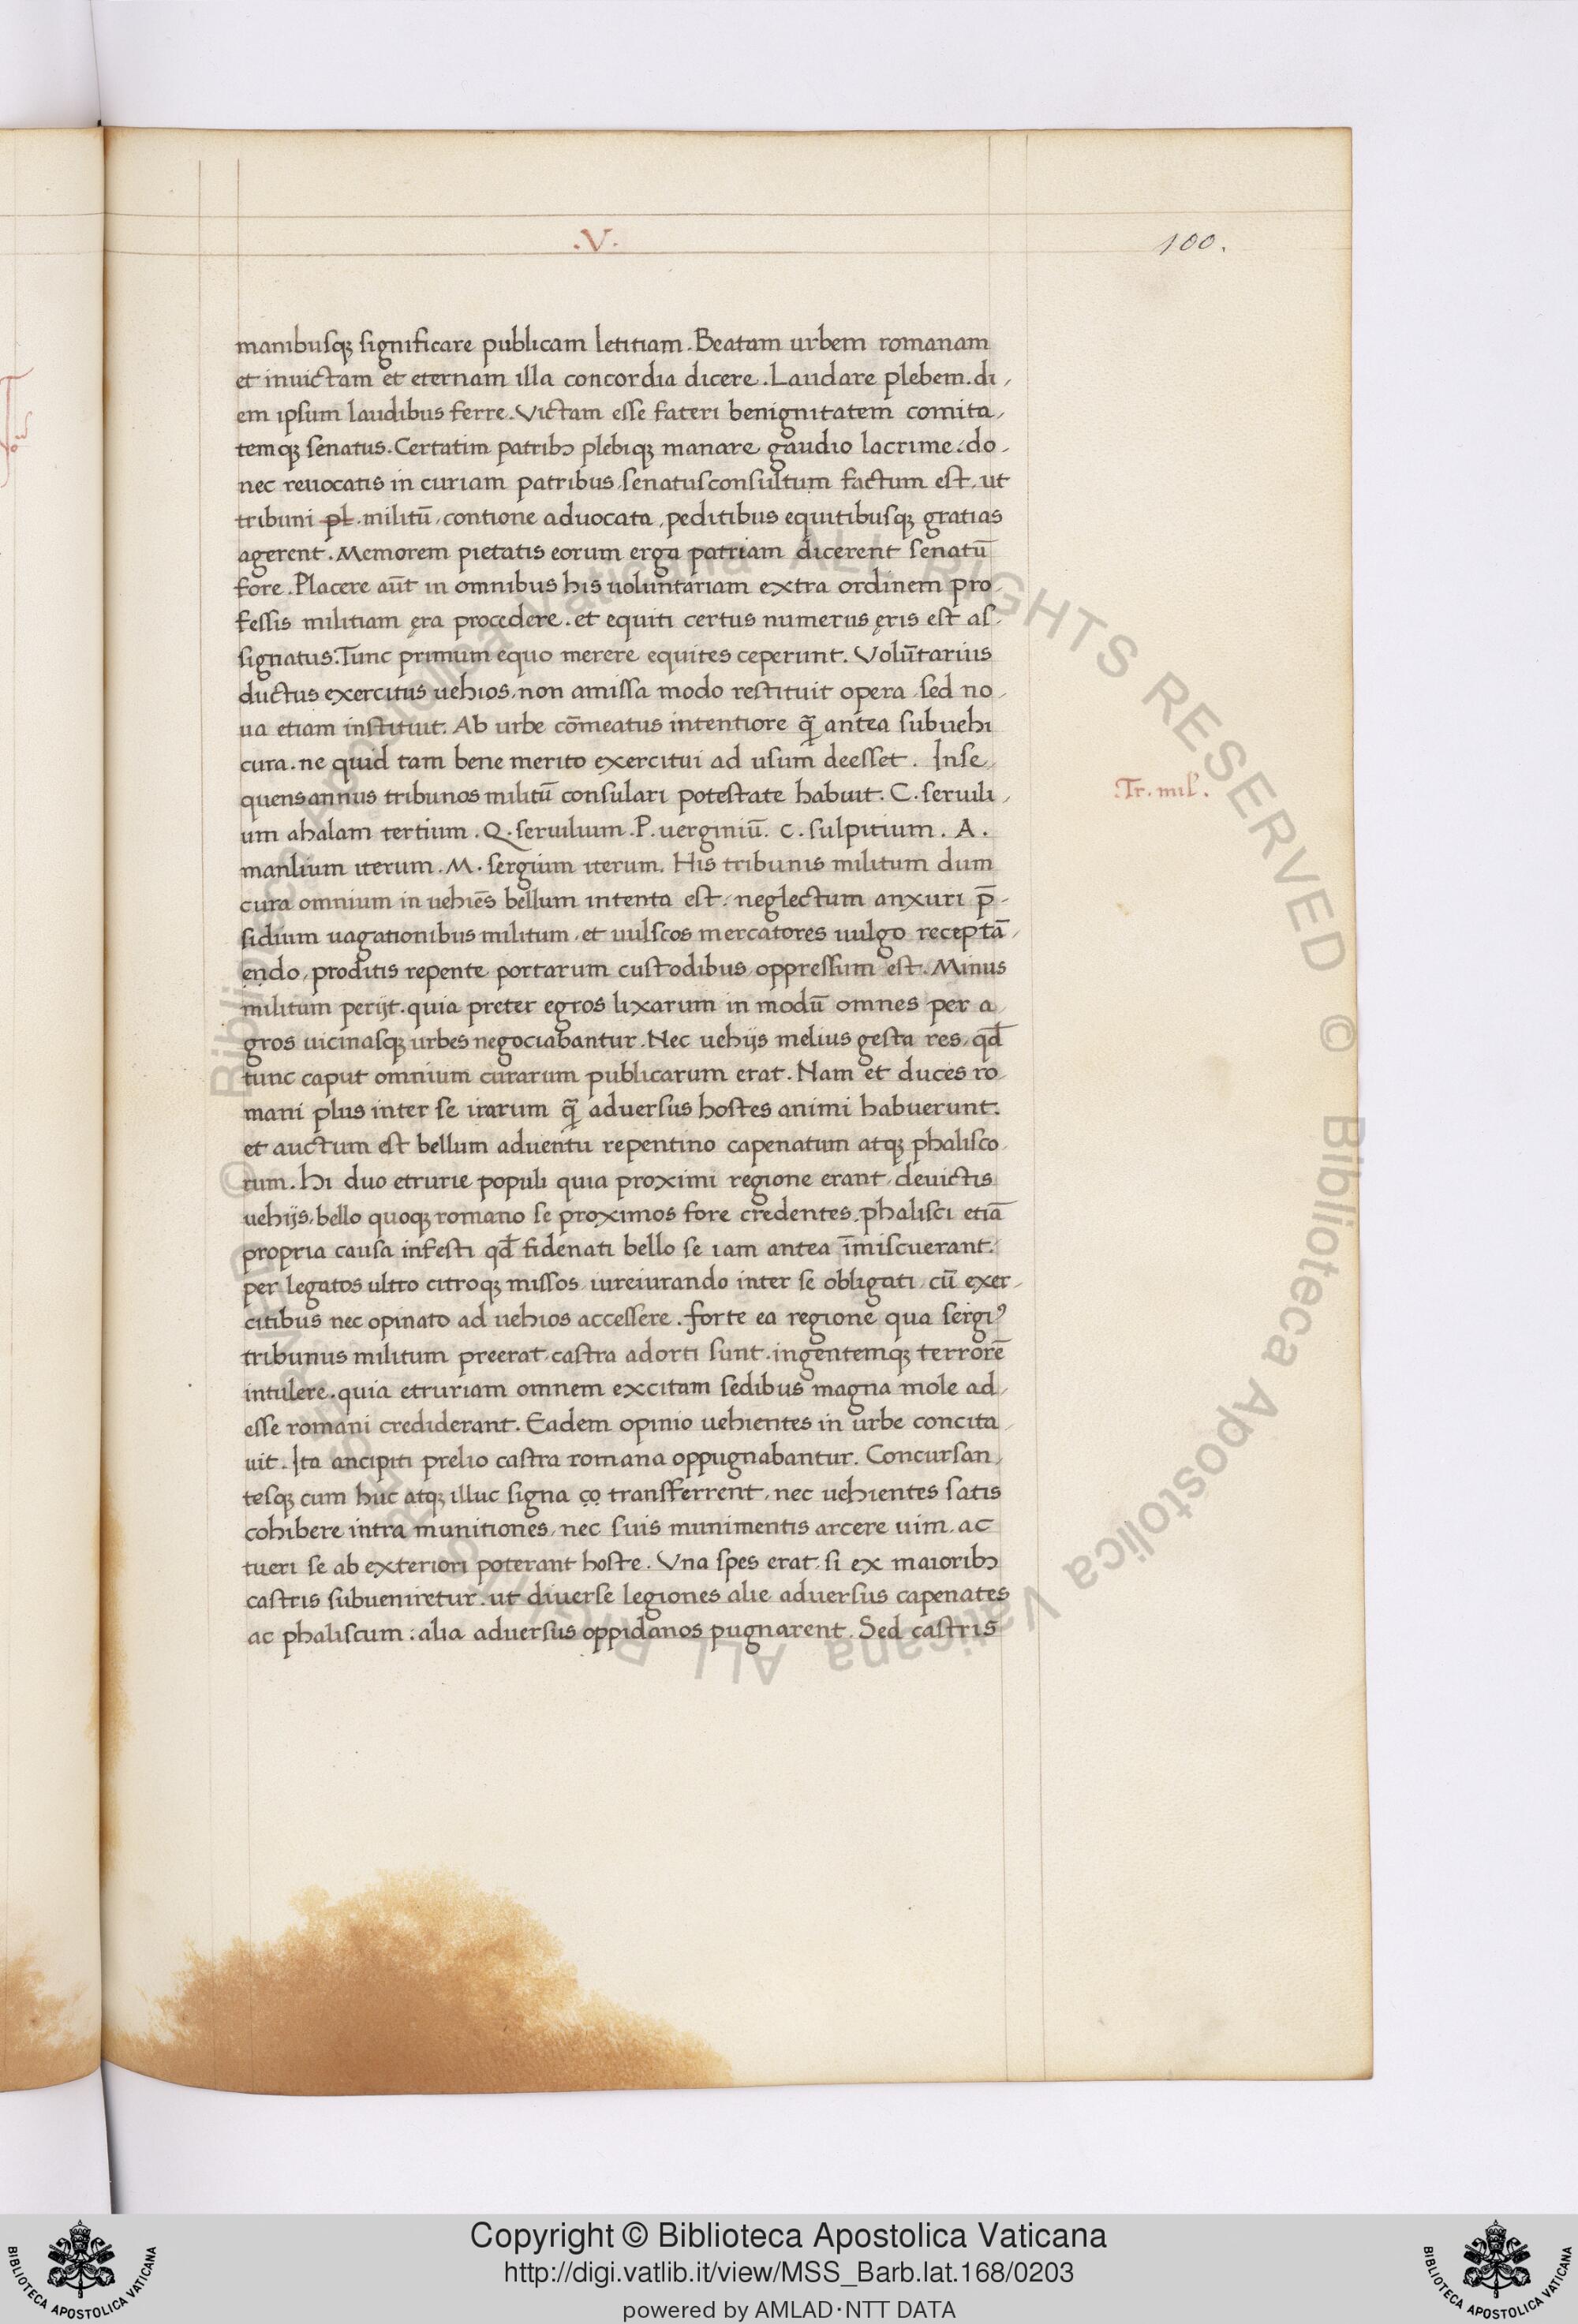 .V.
100.
manibusq; significare publicam letitiam. Beatam urbem romanam
et inuictam et eternam illa concordia dicere. Laudare plebem. di,
em ipsum laudibus ferre. Victam esse fateri benignitatem comita,
temq; senatus. Certatim patribꝫ plebiq; manare gaudio lacrime. do,
nec reuocatis in curiam patribus, senatusconsultum factum est, ut
tribuni pl. militū, contione aduocata, peditibus equitibusq; gratias
agerent. Memorem pietatis eorum erga patriam dicerent senatū
fore. Placere aūt in omnibus his uoluntariam extra ordinem pro,
fessis militiam ęra procedere. et equiti certus numerus ęris est as,
signatus. Tunc primum equo merere equites ceperunt. Volūtarius
ductus exercitus uehios, non amissa modo restituit opera, sed no,
ua etiam instituit. Ab urbe cōmeatus intentiore q̄ antea subuehi
cura. ne quid tam bene merito exercitui ad usum deesset. Inse,
quens annus tribunos militū consulari potestate habuit. C. seruili,
Tr. mil.
um ahalam tertium. Q. seruilium. P. uerginiū. C. sulpitium. A.
manlium iterum. M. sergium iterum. His tribunis militum dum
cura omnium in uehiēs bellum intenta est, neglectum anxuri p̄,
sidium uagationibus militum, et uulscos mercatores uulgo receptā,
endo, proditis repente portarum custodibus, oppressum est. Minus
militum perijt. quia preter egros lixarum in modū omnes per a,
gros uicinasq; urbes negociabantur. Nec uehijs melius gesta res, qd̄
tunc caput omnium curarum publicarum erat. Nam et duces ro,
mani plus inter se irarum q̄ aduersus hostes animi habuerunt.
et auctum est bellum aduentu repentino capenatum atq; phalisco,
rum. Hi duo etrurie populi quia proximi regione erant, deuictis
uehijs, bello quoq; romano se proximos fore credentes. phalisci etiā
propria causa infesti qd̄ fidenati bello se iam antea īmiscuerant.
per legatos ultro citroq; missos, iureiurando inter se obligati, cū exer,
citibus nec opinato ad uehios accessere. forte ea regione qua sergiꝰ
tribunus militum preerat, castra adorti sunt. ingentemq; terrorē
intulere. quia etruriam omnem excitam sedibus magna mole ad,
esse romani crediderant. Eadem opinio uehientes in urbe concita,
uit. Ita ancipiti prelio castra romana oppugnabantur. Concursan,
tesq; cum huc atq; illuc signa co transferrent, nec uehientes satis
cohibere intra munitiones, nec suis munimentis arcere uim. ac
tueri se ab exteriori poterant hoste. Vna spes erat, si ex maioribꝫ
castris subueniretur. ut diuerse legiones alie aduersus capenates
ac phaliscum: alia aduersus oppidanos pugnarent. Sed castris
© Biblioteca Apostolica Vaticana ALL RIGHTS RESERVED
© Biblioteca Apostolica Vaticana ALL RIGHTS RESERVED
Copyright © Biblioteca Apostolica Vaticana
http://digi.vatlib.it/view/MSS_Barb.lat.168/0203
powered by AMLAD·NTT DATA
BIBLIOTECA APOSTOLICA VATICANA
BIBLIOTECA APOSTOLICA VATICANA